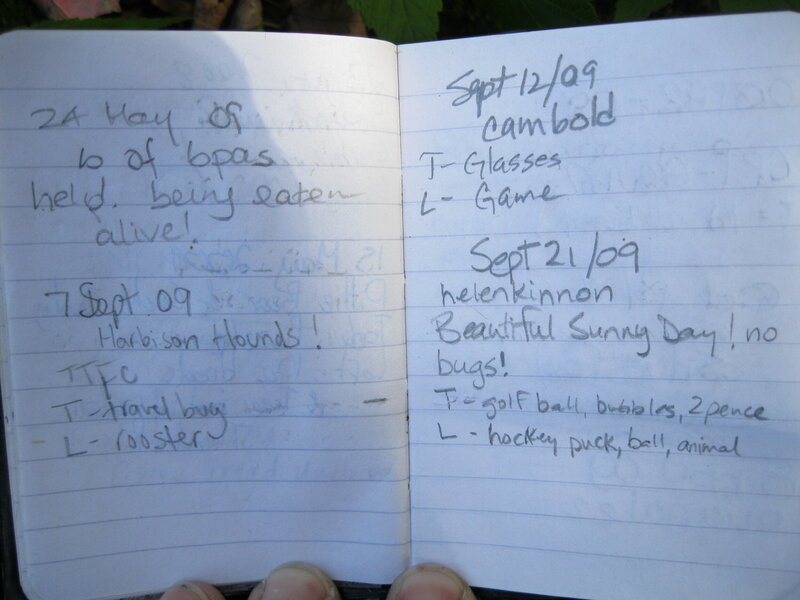 24 May 09
b of bpas
held. being eaten
alive!
7 Sept 09
Harbison Hounds!
TTFC
T - travel bug
L - rooster
Sept 12/09
cambold
T - Glasses
L - Game
Sept 21/09
helenkinnon
Beautiful Sunny Day! no
bugs!
T - golf ball, bubbles, 2 pence
L - hockey puck, ball, animal